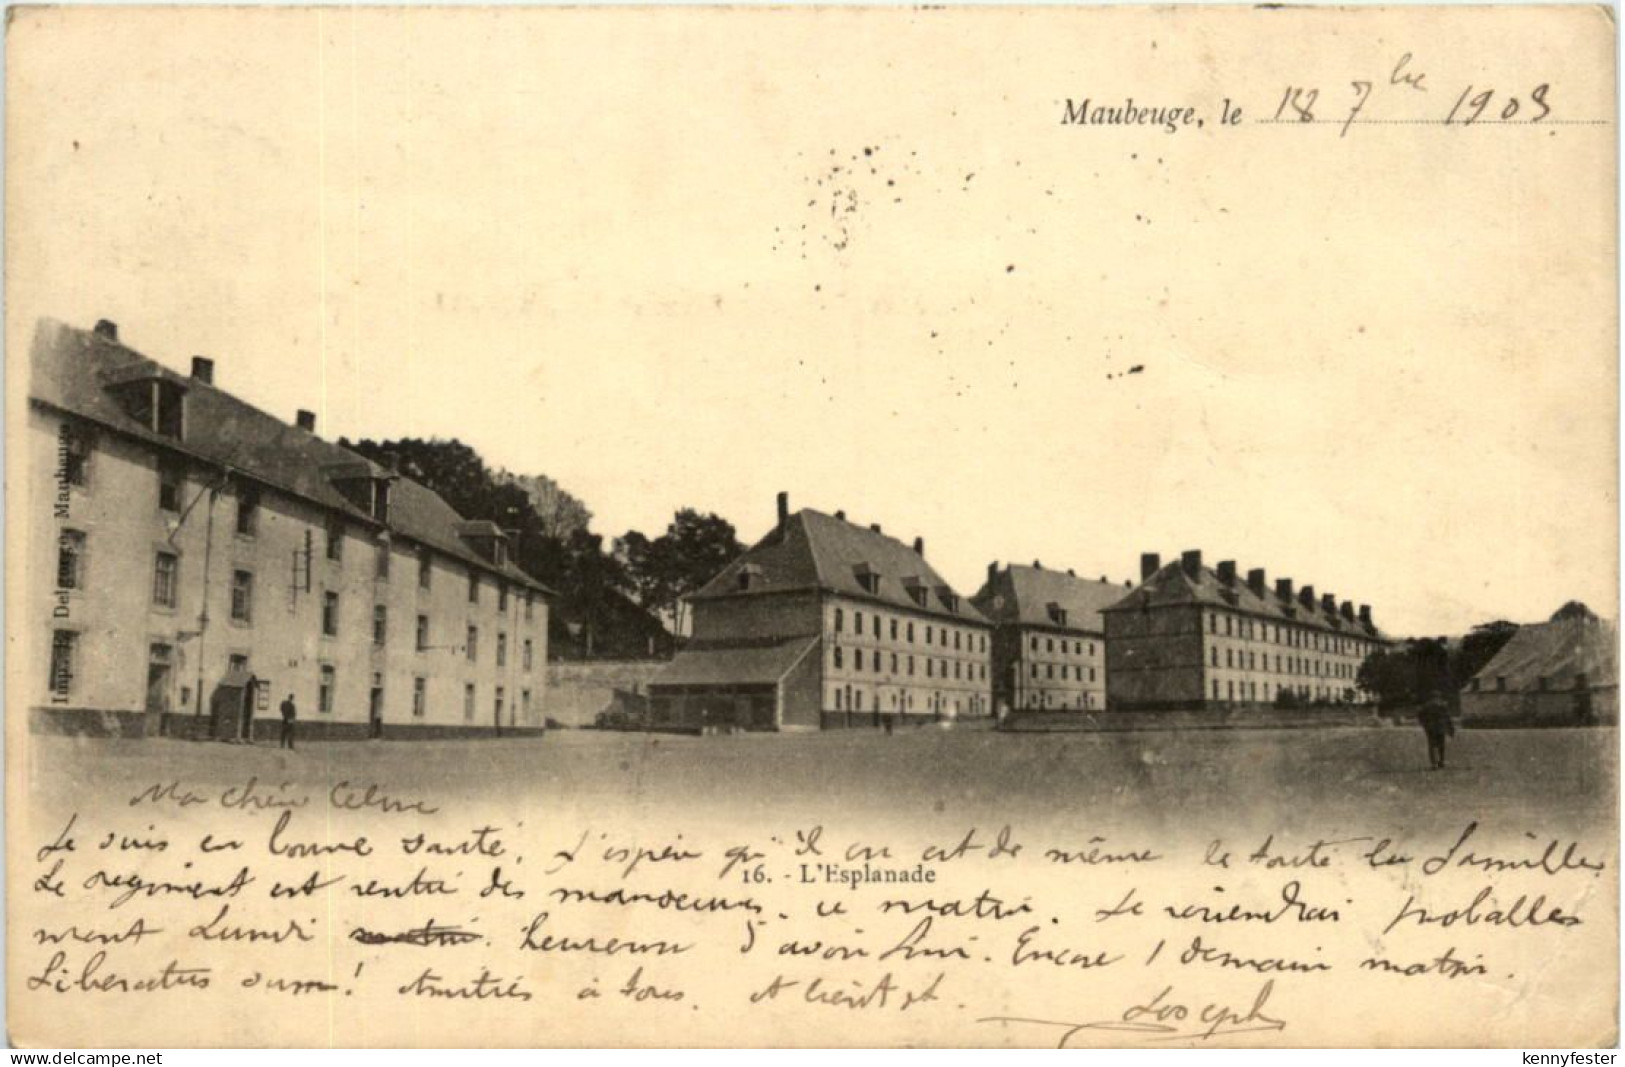 Maubeuge, le 18 7bre 1903.
Imp. Delgusty Maubeuge
Ma chère Celine
Je suis en bonne santé, J'espère qu'il en est de même de toute la famille.
16. - L'Esplanade
Le régiment est rentré des manoeuvres. ce matin. Je reviendrai probable
ment Lundi matin. heureux d'avoir fini. Encore 1 demain matin.
Liberatus sum! Amitiés à tous. A bientot.
Joseph
kennyfester
www.delcampe.net